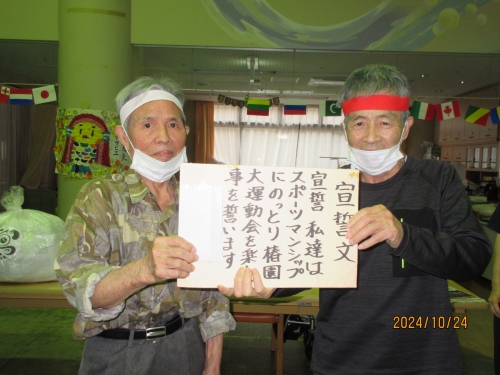 宣誓文
宣誓 私達は
スポーツマンシップ
にのっとり 椿園
大運動会を楽
事を誓います
2024/10/24